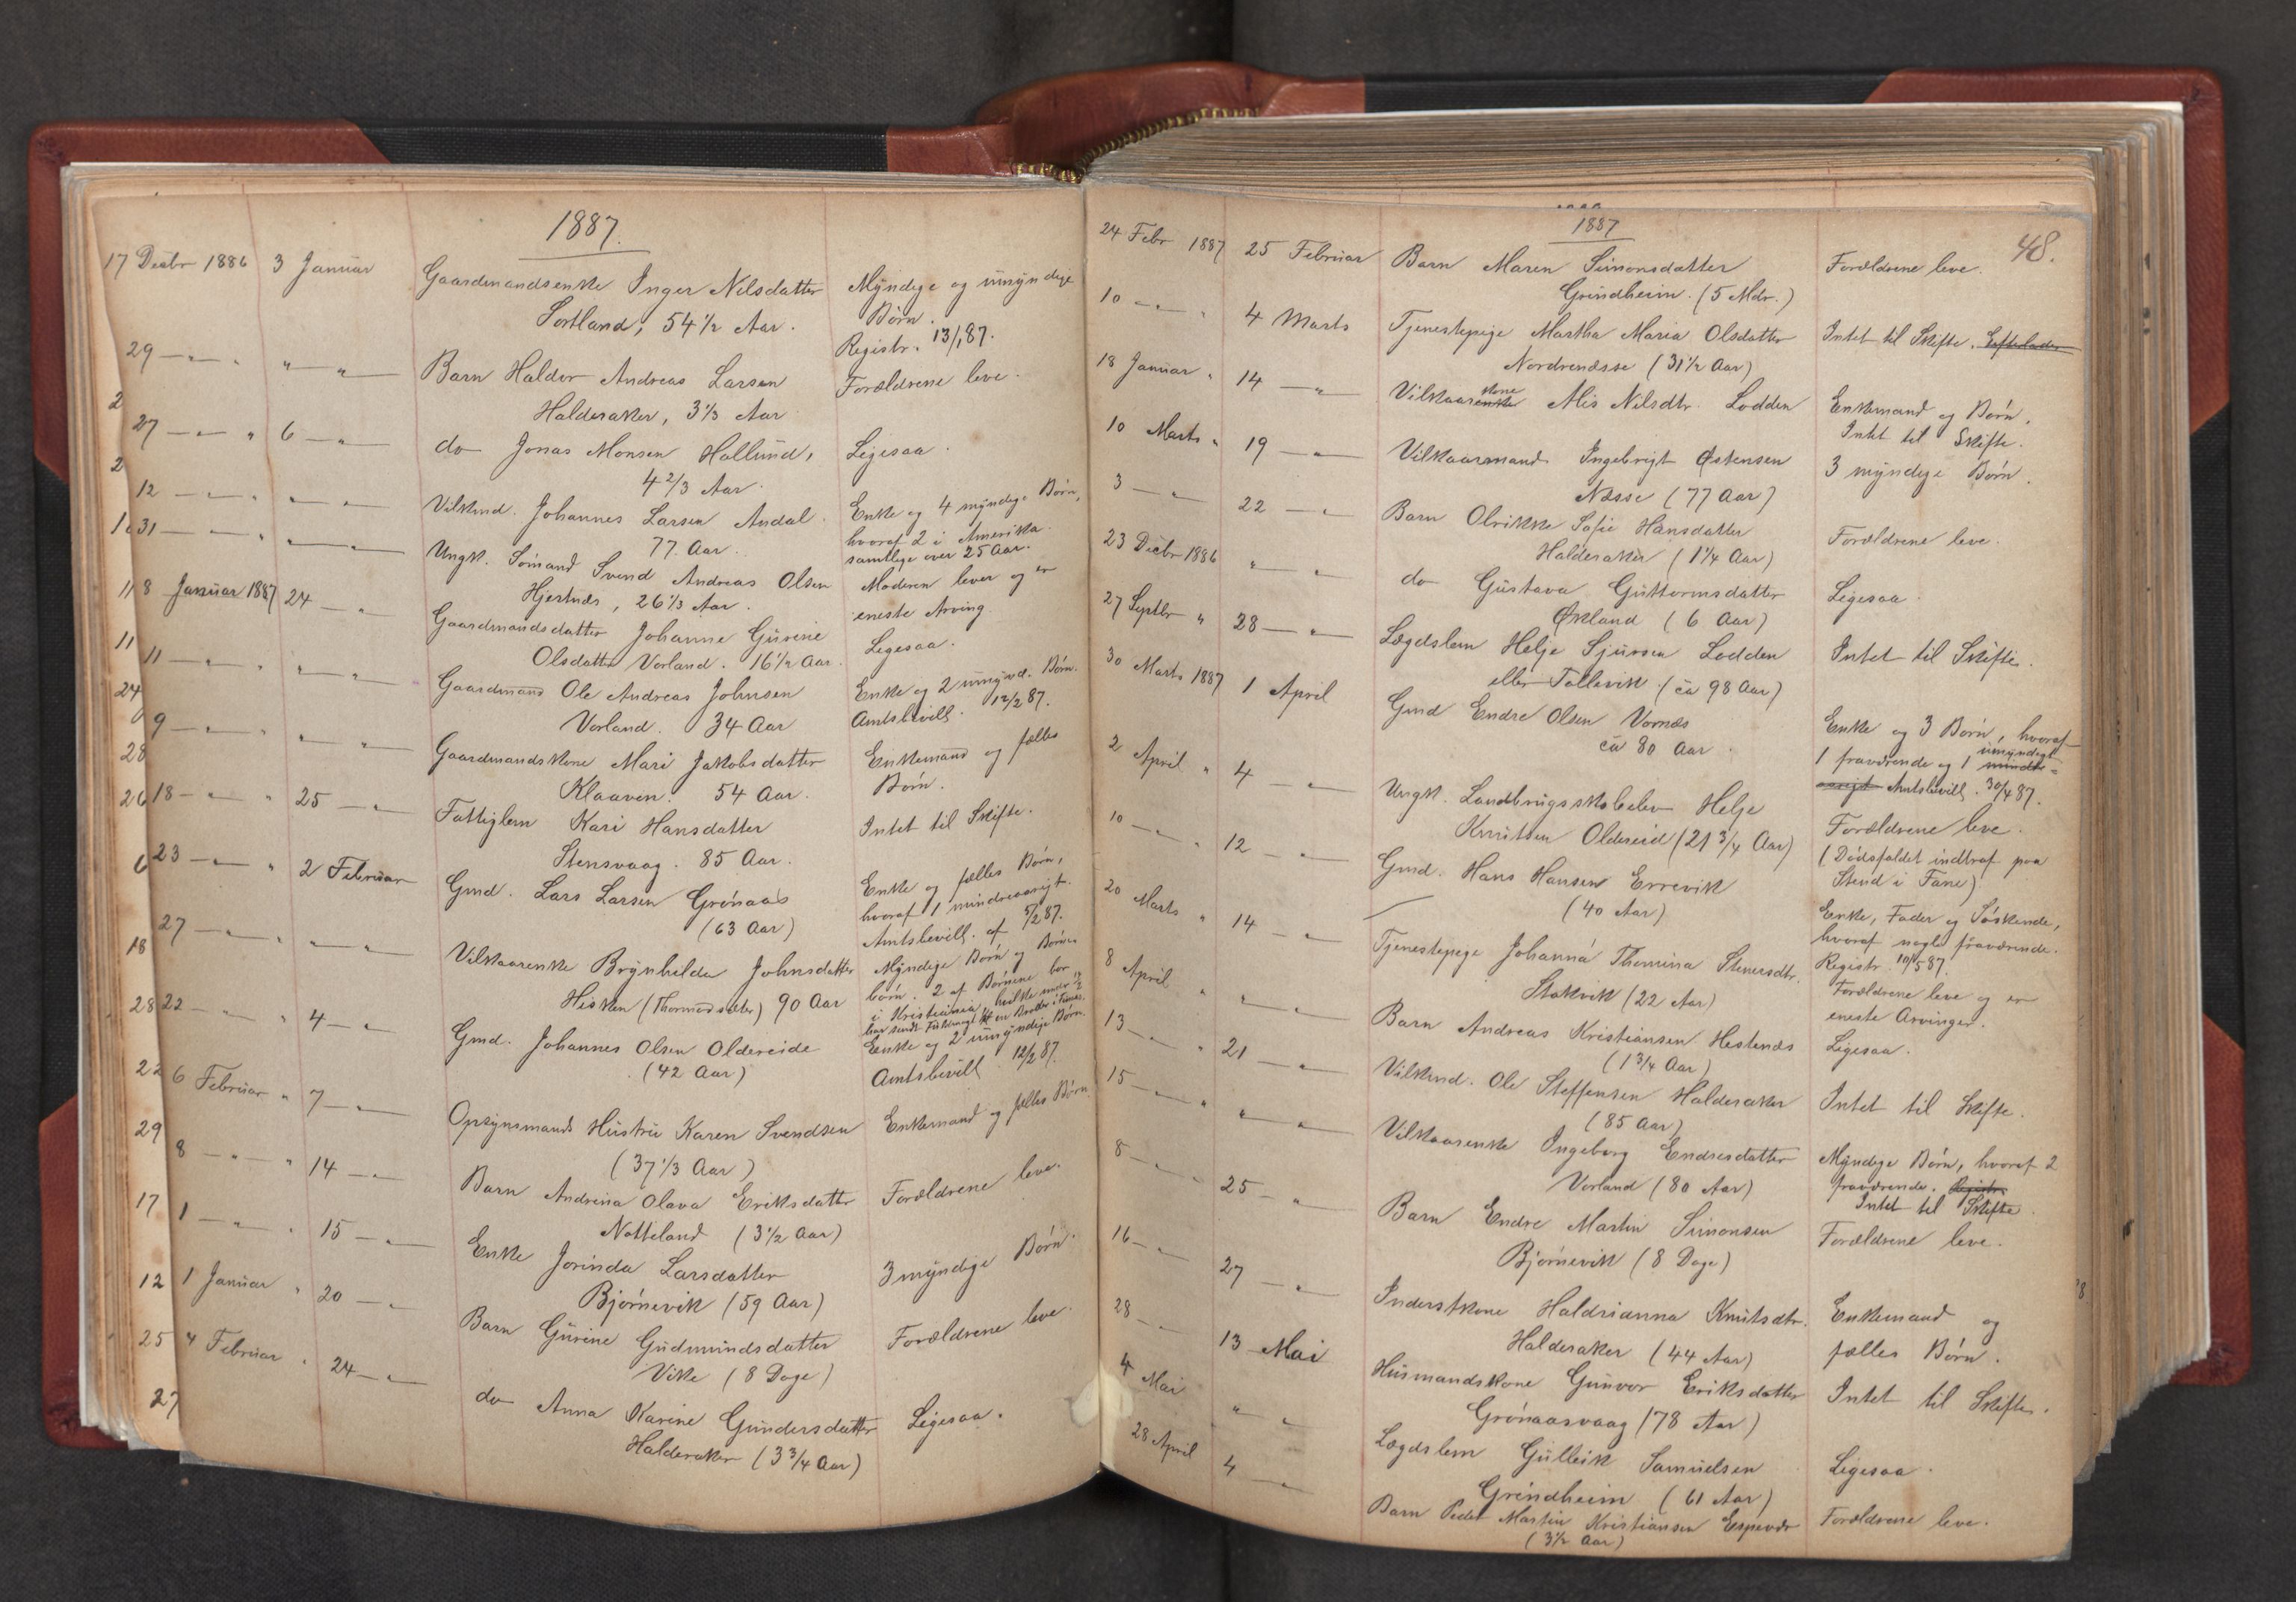 1887.
17 Decbr 1886 3 Januar Gaardmandsenke Inger Nilsdatter Myndige og umyndige
Sortland, 54 1/2 Aar. Børn.
Registr. 13/1 87.
29 — " — " " — " — Barn Haldor Andreas Larsen Forældrene leve.
Halderaker, 3 1/3 Aar
27 — " — " 6 — " — do Jonas Monsen Hollund, Ligesaa.
4 2/3 Aar.
12 — " — " — " — Vilkmd. Johannes Larsen Andal Enke og 4 myndige Børn,
77 Aar. hvoraf 2 i Amerika
samtlige over 25 Aar.
31 — " — " — " — Ungk. Sømand Svend Andreas Olsen Moderen lever og er
Hjertnæs, 26 1/3 Aar. eneste Arving.
8 Januar 1887 24 — " — Gaardmandsdatter Johanne Gurine Ligesaa.
Olsdatter Vorland. 16 1/2 Aar.
11 — " — " — " — Gaardmand Ole Andreas Johnsen Enke og 2 umynd. Børn.
Vorland. 34 Aar Amtsbevill. 12/2 87.
9 — " — " — " — Gaardmandskone Mari Jakobsdatter Enkemand og fælles
Klaaven. 54 Aar. Børn.
18 — " — " 25 — " — Fattiglem Kari Hansdatter Intet til Skifte.
Stensvaag. 85 Aar.
23 — " — " 2 Februar Gmd. Lars Larsen Grønaas Enke og fælles Børn,
(63 Aar) hvoraf 1 mindreaarigt.
Amtsbevill. af 5/2 87.
27 — " — " — " — Vilkaarenke Brynhilda Johnsdatter Myndige Børn og Børne
Hisken (Thormodsæter) 90 Aar børn. 2 af Børnene bor
i Kristiania
22 — " — " 4 — " — Gmd. Johannes Olsen Oldereide Enke og 2 umyndige Børn.
(42 Aar) Amtsbevill. 12/2 87.
6 Februar " 7 — " — Opsynsmands Hustru Karen Svendsen Enkemand og fælles Børn
(37 1/3 Aar)
8 — " — " 14 — " — Barn Andrina Olava Eriksdatter Forældrene leve.
Notteland (3 1/2 Aar)
1 — " — " 15 — " — Enke Jorinda Larsdatter 3 myndige Børn.
Bjørnevik (59 Aar)
1 Januar " 20 — " — Barn Gurine Gudmundsdatter Forældrene leve.
Vike (8 Dage)
4 Februar " 24 — " — do Anna Karine Gundersdatter Ligesaa.
Halderaker (3 3/4 Aar)
1887
48.
24 Febr 1887 25 Februar Barn Maren Simonsdatter Forældrene leve.
Grindheim. (5 Mdr.)
10 — " — " 4 Marts Tjenestepige Martha Maria Olsdatter Intet til Skifte. Efterlader
Nordrenæsse (31 1/2 Aar)
18 Januar " 14 — " — Vilkaarenke kone Alis Nilsdtr. Lodden Enkemand og Børn,
Intet til Skifte.
10 Marts " 19 — " — Vilkaarsmand Ingebrigt Østensen 3 myndige Børn.
Næsse (77 Aar)
3 — " 22 — " — Barn Olrikke Sofie Hansdatter Forældrene leve.
Halderaker (1 1/4 Aar)
23 Decbr 1886 " — " do Gustava Guttormsdatter Ligesaa.
Økland (6 Aar)
27 Septbr " 28 — " — Lægdslem Helje Sjursen Lodden Intet til Skifte.
eller Tollevik (ca 98 Aar)
30 Marts 1887 1 April Gmd Endre Olsen Vornæs Enke og 3 Børn, hvoraf
ca 80 Aar. 1 fraværende og 1 mindre- umyndigt
aarigt Amtsbevill. 30/4 87.
2 April " 4 — " — Ungk. Landbrugsskoleelev Helje Forældrene leve.
Knutsen Oldereid (21 3/4 Aar) (Dødsfaldet indtraf paa
Stend i Fane)
10 — " — " 12 — " — Gmd. Hans Hansen Errevik Enke, Fader og Søskende,
(40 Aar) hvoraf nogle fraværende.
Registr. 10/5 87.
20 Marts " 14 — " — Tjenestepige Johanna Thomina Steversdtr. Forældrene leve og er
Stokvik (22 Aar) eneste Arvinger.
8 April " " — " — Barn Andreas Kristiansen Hestenæs Ligesaa.
(1 3/4 Aar)
13 — " — " 21 — " — Vilkmd. Ole Steffensen Halderaker Intet til Skifte.
(85 Aar)
15 — " — " " — " — Vilkaarenke Ingeborg Endresdatter Myndige Børn, hvoraf 2
Vorland (80 Aar) fraværende. Registr.
Intet til Skifte.
8 — " — 25 — " — Barn Endre Martin Simonsen Forældrene leve.
Bjørnevik (8 Dage)
16 — " — 27 — " — Inderstkone Haldrianna Knutsdtr. Enkemand og
Halderaker (44 Aar) fælles Børn.
28 — " — 13 Mai Husmandskone Gunvor Eriksdatter Intet til Skifte.
Grønaasvaag (78 Aar)
4 Mai " — " Lægdslem Gulleik Samuelsen Ligesaa.
Grindheim (61 Aar)
28 April 4 — " — Barn Peder Martin Kristiansen Espevær Forældrene leve.
(3 1/2 Aar)